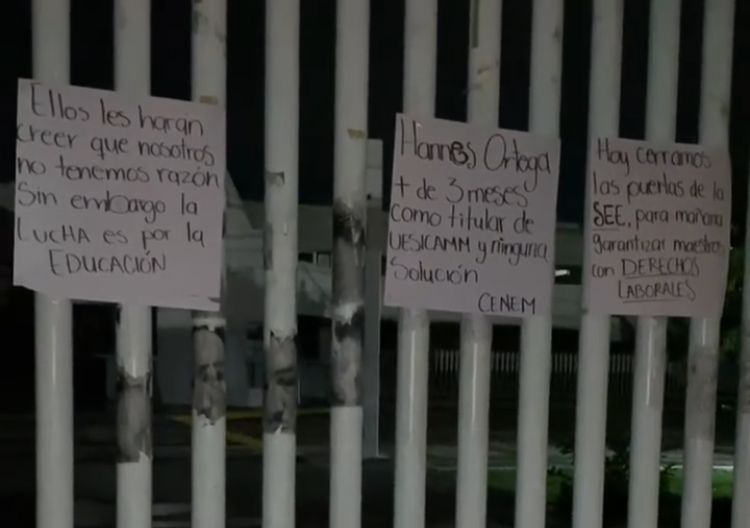 Ellos les harán
creer que nosotros
no tenemos razón
Sin embargo la
LUCHA es por la
EDUCACIÓN
Hannes Ortega
+ de 3 meses
como titular de
UESICAMM y ninguna
Solución
CENEM
Hoy cerramos
las puertas de la
SEE, para mañana
garantizar maestros
con DERECHOS
LABORALES